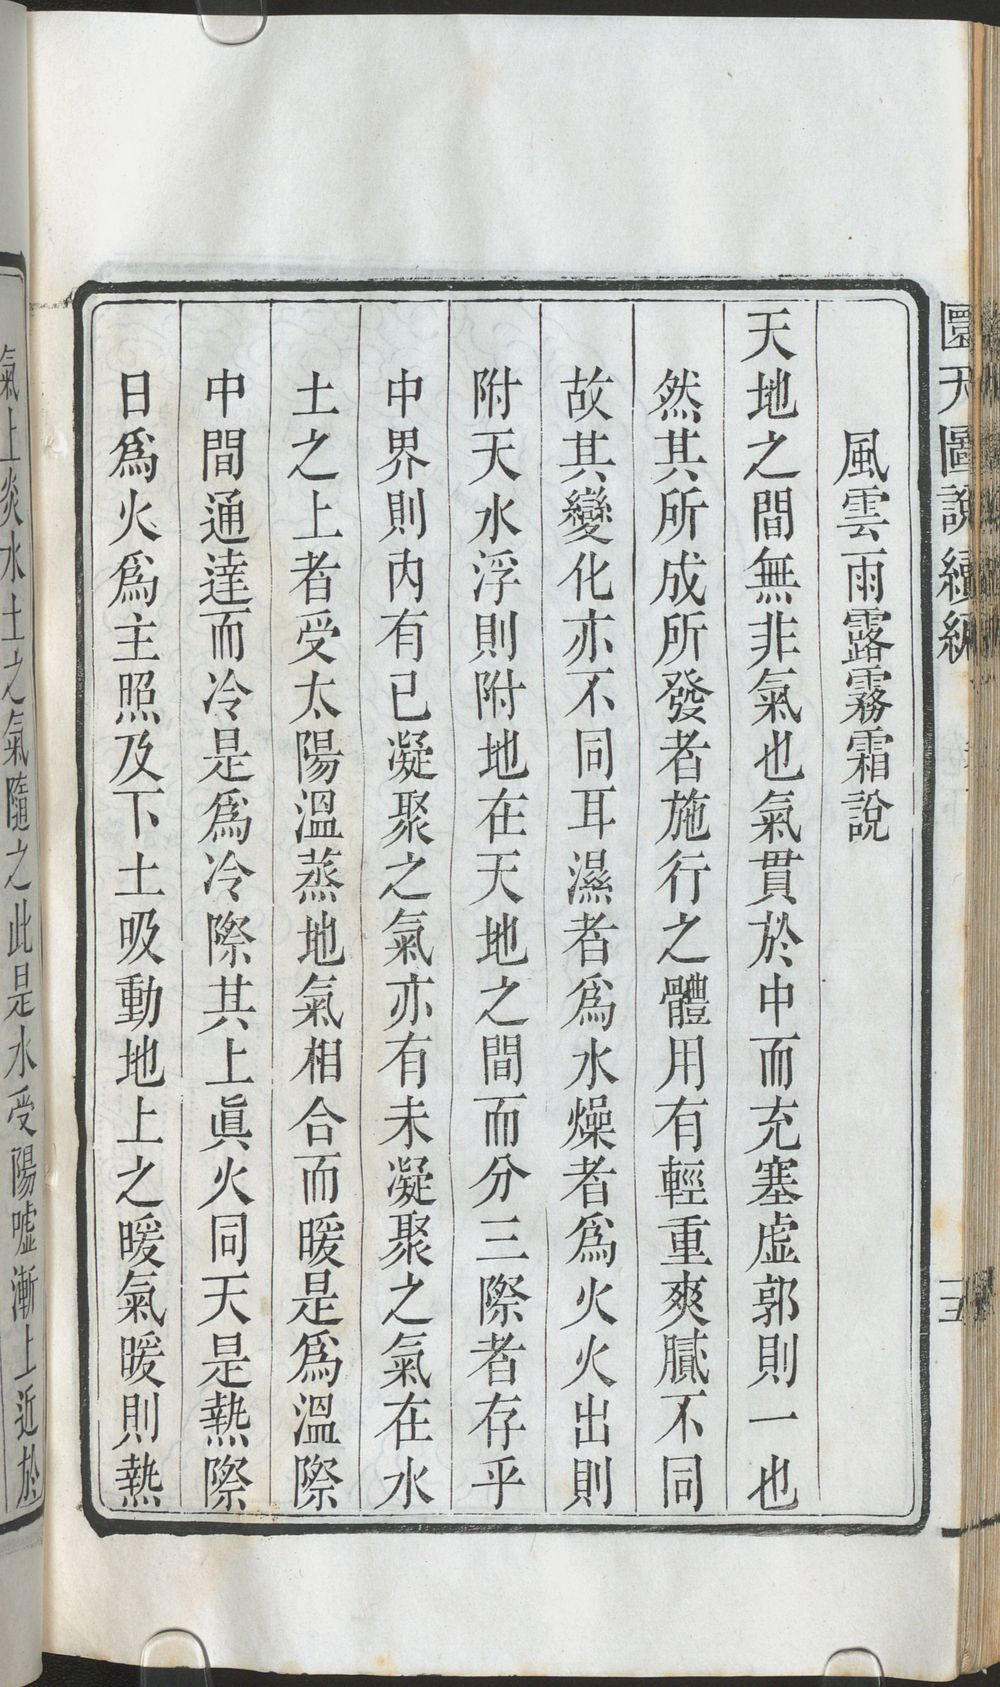 圜天圖說續編
風雲雨露霧霜說
天地之間無非氣也氣貫於中而充塞虛郭則一也
然其所成所發者施行之體用有輕重爽膩不同
故其變化亦不同耳濕者爲水燥者爲火火出則
附天水浮則附地在天地之間而分三際者存乎
中界則內有已凝聚之氣亦有未凝聚之氣在水
土之上者受太陽溫蒸地氣相合而暖是爲溫際
中間通達而冷是爲冷際其上眞火同天是熱際
日爲火爲主照及下土吸動地上之暖氣暖則熱
氣上炎水土之氣隨之此是水受陽噓漸上近於